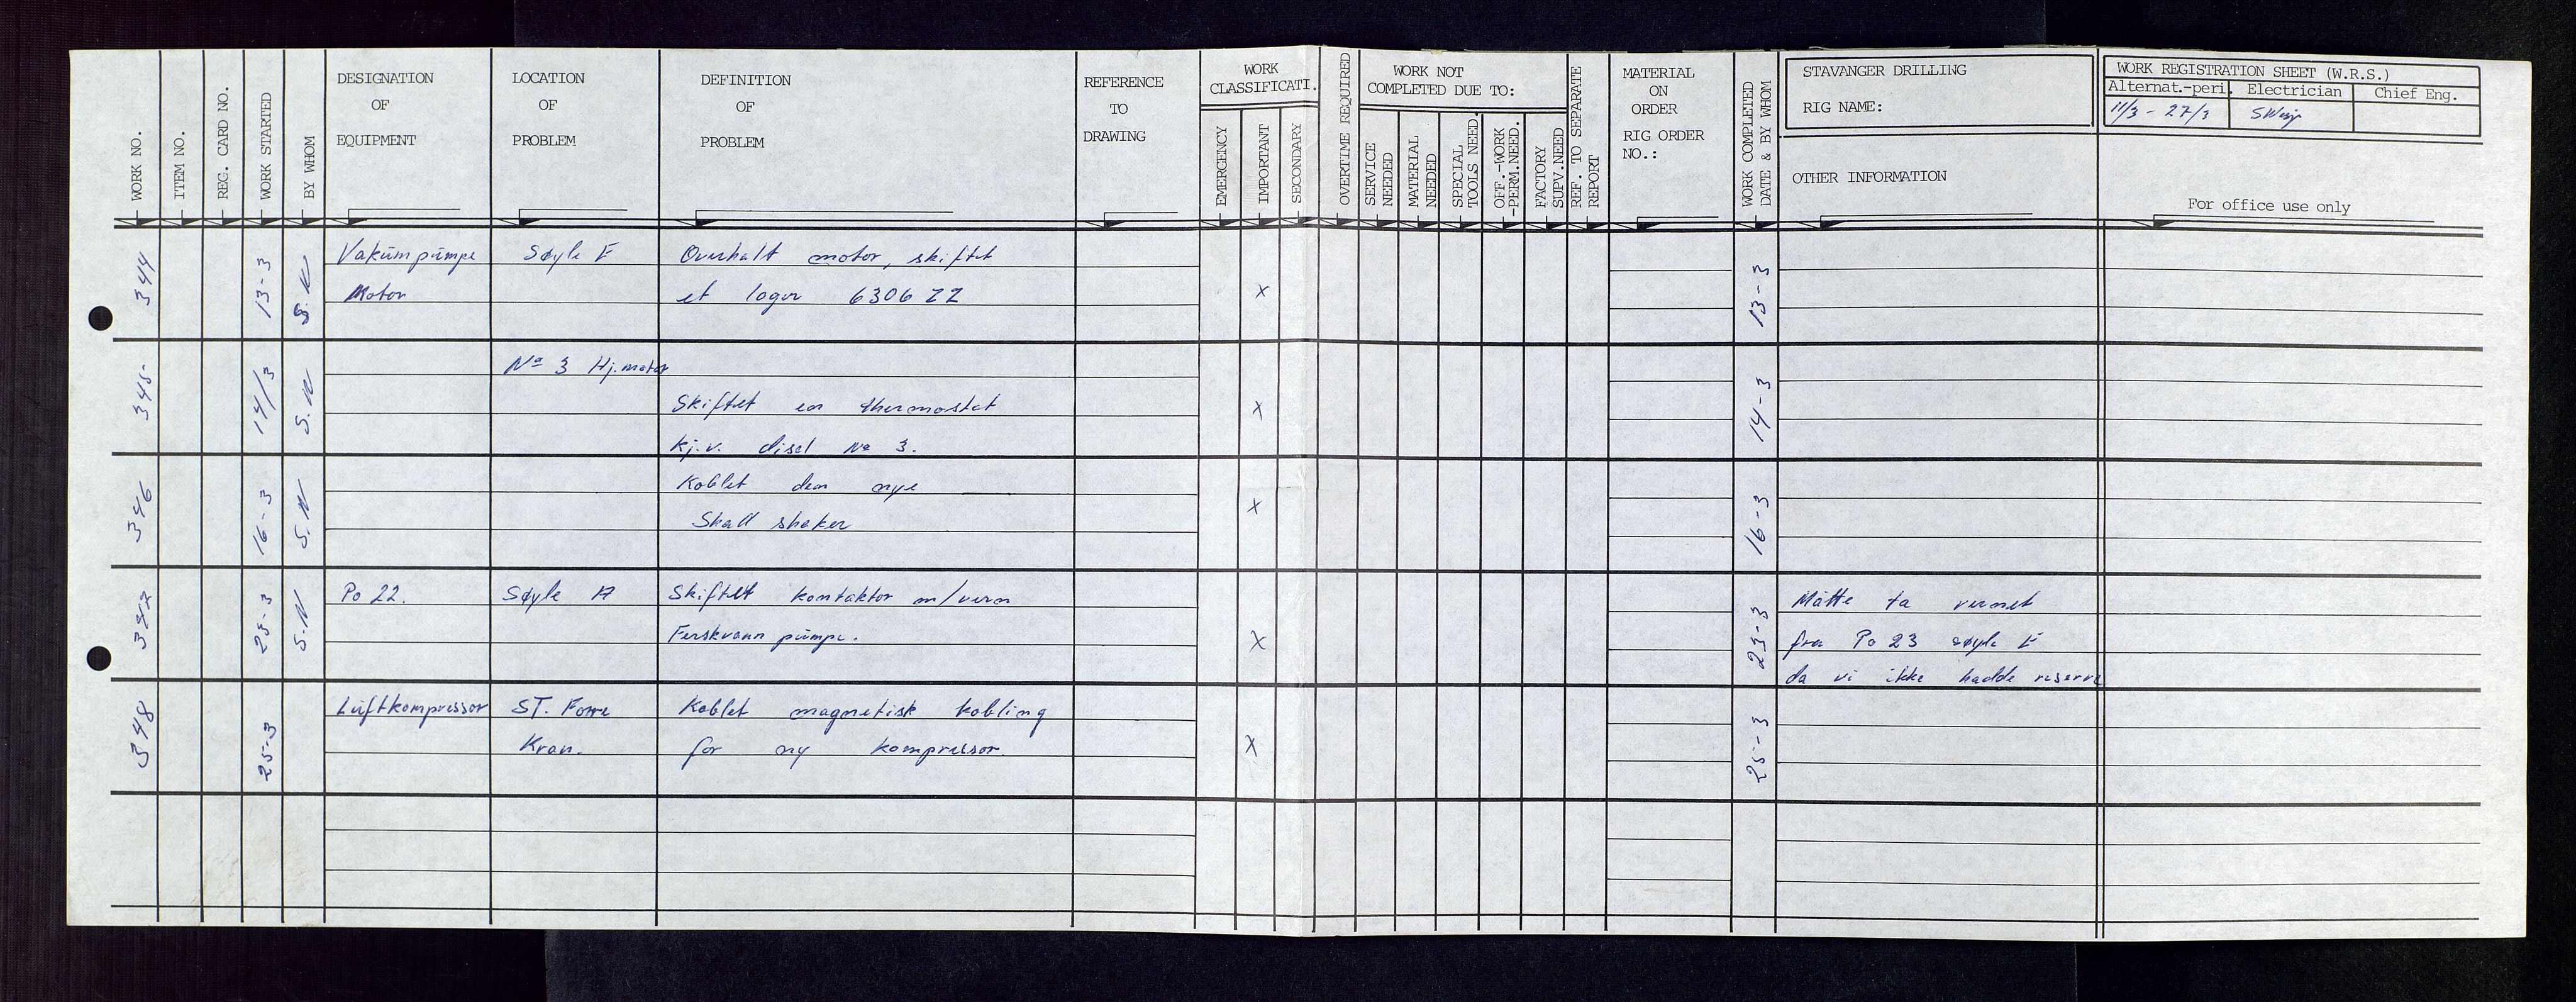 STAVANGER DRILLING
RIG NAME:
WORK REGISTRATION SHEET (W.R.S.)
Alternat.-peri. Electrician Chief Eng.
11/3 - 27/3
WORK NO.
ITEM NO.
REG. CARD NO.
WORK STARTED
BY WHOM
DESIGNATION
OF
EQUIPMENT
LOCATION
OF
PROBLEM
DEFINITION
OF
PROBLEM
REFERENCE
TO
DRAWING
WORK
CLASSIFICATI.
EMERGENCY
IMPORTANT
SECONDARY
OVERTIME REQUIRED
WORK NOT
COMPLETED DUE TO:
SERVICE
NEEDED
MATERIAL
NEEDED
SPECIAL
TOOLS NEED.
OFF.-WORK
-PERM.NEED.
FACTORY
SUPV.NEED
REF. TO SEPARATE
REPORT
MATERIAL
ON
ORDER
RIG ORDER
NO.:
WORK COMPLETED
DATE & BY WHOM
OTHER INFORMATION
For office use only
344 13-3 S.N Vakümpümpe Søyle E Overhalt motor, skiftet 13-3
Motor et lager 6306 ZZ x
345 14/3 S.N Nº 3 Hj.motor 14-3
Skiftet en thermostat x
Hj.v. disel Nº 3.
346 16-3 S.N Koblet den nye 16-3
Shall shaker x
347 23-3 S.N Po 22. Søyle A Skiftet kontaktor m/vern 23-3 Måtte ta vernet
Ferskvann pümpe. x fra Po 23 søyle E
da vi ikke hadde reserve
348 25-3 Lüftkompressor ST. Forre Koblet magnetisk kobling 25-3
Kran. for ny kompressor. x